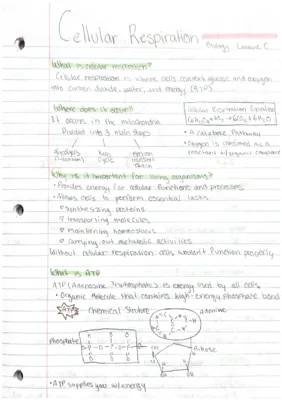 Cellular Respiration
Biology Lecture C.
What is cellular respiration?
Cellular respiration is where cells convert glucose and oxygen
into carbon dioxide, water, and energy (ATP)
Where does it occur?
It occurs in the mitochondria
Divided into 3 main steps
glycolysis
Kreb
Cycle
electron
transport
chain
Cellular Respiration Equation
C6H12O6 + 6O2 → 6CO2 + 6H2O
• A catabolic Pathway
• Oxygen is consumed as a
reactant w/ organic compound
Why is it important for living organisms?
• Provides energy for cellular functions and processes
• Allows cells to perform essential tasks
synthesizing proteins
transporting molecules
maintaining homeostasis
carrying out metabolic activities
Without cellular respiration cells wouldn't function properly
What is ATP
ATP (Adenosine Triphosphate) is energy used by all cells
• Organic Molecule that contains high-energy phosphate bond
ATP Chemical Structure
adenine
Phosphate
Ribose
• ATP supplies you w/ energy